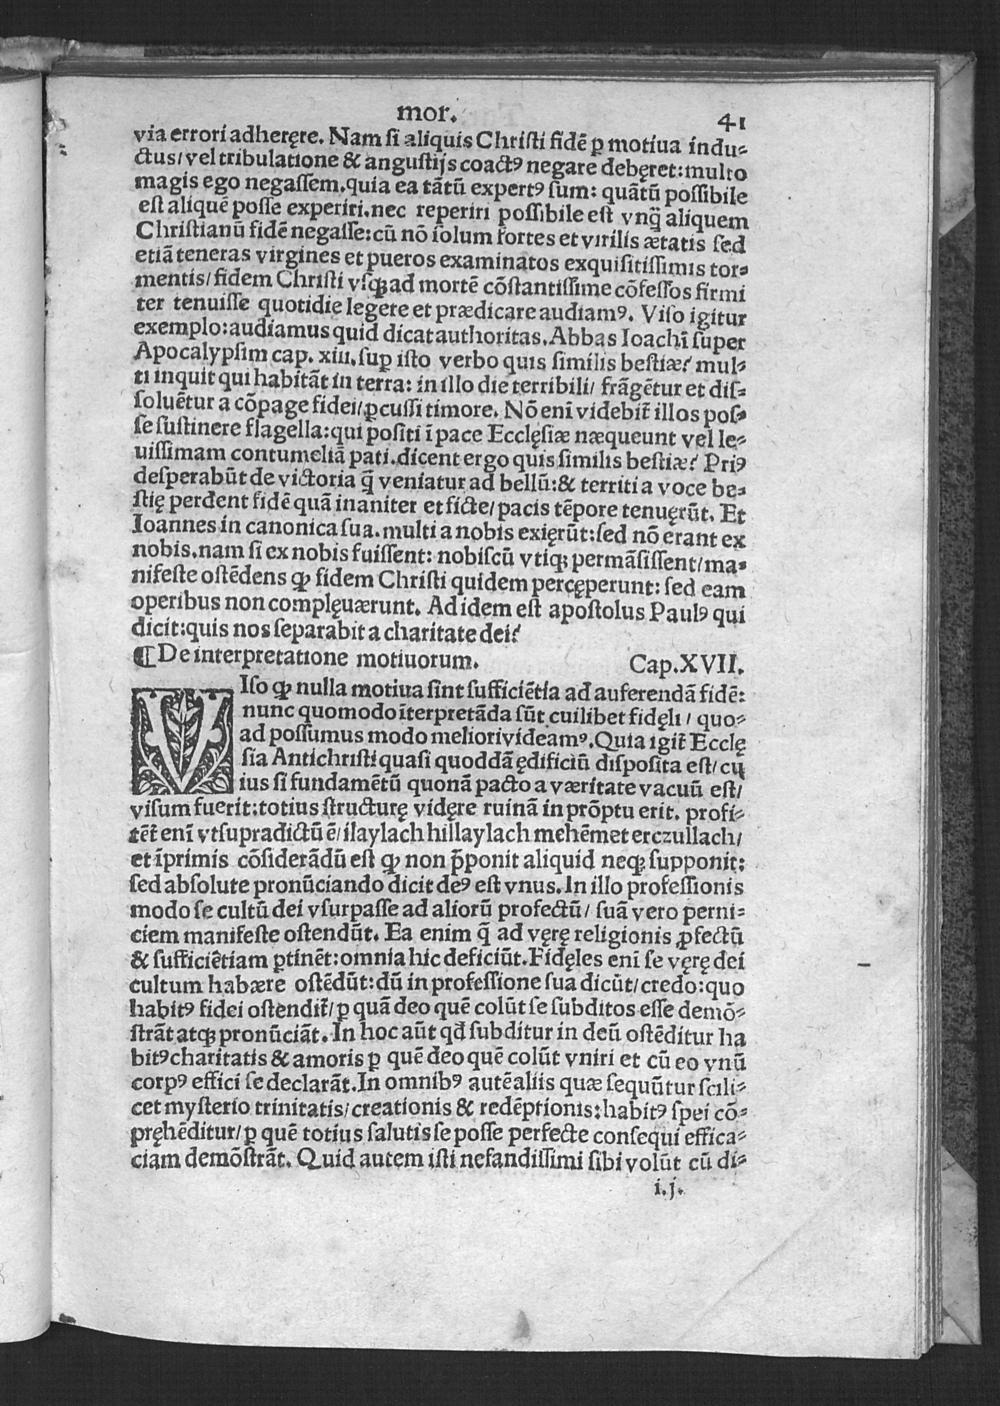 mor.
41
via errori adheręre. Nam si aliquis Christi fidē ꝑ motiua indu⸗
ctus/ vel tribulatione & angustijs coactꝰ negare debęret: multo
magis ego negassem. quia ea tātū expertꝰ sum: quātū possibile
est aliquē posse experiri. nec reperiri possibile est vnq̃ aliquem
Christianū fidē negasse: cū nō solum fortes et virilis ætatis sed
etiā teneras virgines et pueros examinatos exquisitissimis tor⸗
mentis/ fidem Christi vsqꝫ ad mortē cōstantissime cōfessos firmi
ter tenuisse quotidie legere et prædicare audiamꝰ. Viso igitur
exemplo: audiamus quid dicat authoritas. Abbas Ioachī super
Apocalypsim cap. xiii. suꝑ isto verbo quis similis bestiæ? mul⸗
ti inquit qui habitāt in terra: in illo die terribili/ frāgētur et dis⸗
soluētur a cōpage fidei/ ꝑcussi timore. Nō enī videbit̃ illos pos⸗
se sustinere flagella: qui positi ī pace Ecclęsiæ næqueunt vel le⸗
uissimam contumeliā pati. dicent ergo quis similis bestiæ? Priꝰ
desperabūt de victoria q̃ veniatur ad bellū: & territi a voce be⸗
stię perdent fidē quā inaniter et ficte/ pacis tēpore tenuęrūt. Et
Ioannes in canonica sua. multi a nobis exięrūt: sed nō erant ex
nobis. nam si ex nobis fuissent: nobiscū vtiqꝫ permāsissent/ ma⸗
nifeste ostēdens ꝙ fidem Christi quidem percęperunt: sed eam
operibus non complęuærunt. Ad idem est apostolus Paulꝰ qui
dicit: quis nos separabit a charitate dei?
¶ De interpretatione motiuorum. Cap. XVII.
VIso ꝙ nulla motiua sint sufficiētia ad auferendā fidē:
nunc quomodo īterpretāda sūt cuilibet fidęli / quo⸗
ad possumus modo meliori videamꝰ. Quia igit̃ Ecclę
sia Antichristi quasi quoddā ędificiū disposita est/ cu
ius si fundamētū quonā pacto a væritate vacuū est/
visum fuerit: totius structurę vidęre ruinā in prōptu erit. profi⸗
tēt̃ enī vt supradictū ē/ ilaylach hillaylach mehēmet erczullach/
et īprimis cōsiderādū est ꝙ non p̄ponit aliquid neqꝫ supponit:
sed absolute pronūciando dicit deꝰ est vnus. In illo professionis
modo se cultū dei vsurpasse ad aliorū profectū/ suā vero perni⸗
ciem manifeste ostendūt. Ea enim q̃ ad vęrę religionis ꝓfectū
& sufficiētiam ꝑtinēt: omnia hic deficiūt. Fidęles enī se vęrę dei
cultum habære ostēdūt: dū in professione sua dicūt/ credo: quo
habitꝰ fidei ostendit̃/ ꝑ quā deo quē colūt se subditos esse demō⸗
strāt atqꝫ pronūciāt. In hoc aūt qd̄ subditur in deū ostēditur ha
bitꝰ charitatis & amoris ꝑ quē deo quē colūt vniri et cū eo vnū
corpꝰ effici se declarāt. In omnibꝰ autē aliis quæ sequūtur scili⸗
cet mysterio trinitatis/ creationis & redēptionis: habitꝰ spei cō⸗
pręhēditur/ ꝑ quē totius salutis se posse perfecte consequi effica⸗
ciam demōstrāt. Quid autem isti nefandissimi sibi volūt cū di⸗
i.j.